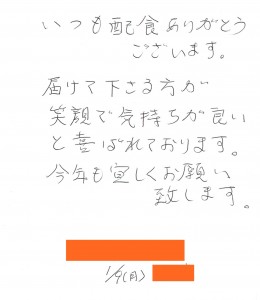 いつも配食ありがとう
ございます。
届けて下さる方が
笑顔で気持ちが良い
と喜ばれております。
今年も宜しくお願い
致します。
1/9(月)